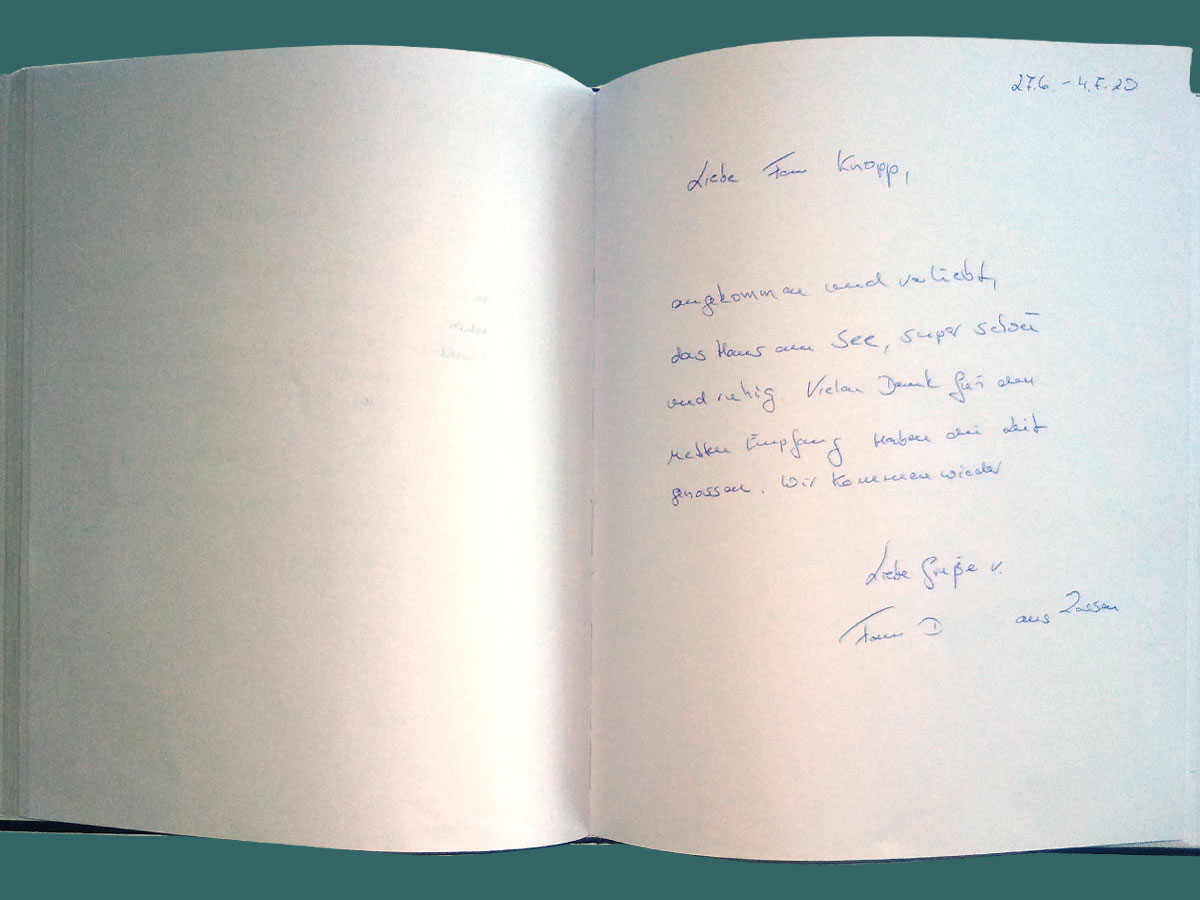 27.6. - 4.7.20
Liebe Fam Knopp,
angekommen und verliebt,
das Haus am See, super schön
und ruhig. Vielen Dank für den
netten Empfang Haben die Zeit
genossen. Wir kommen wieder
Liebe Grüße v.
Fam D aus Zossen